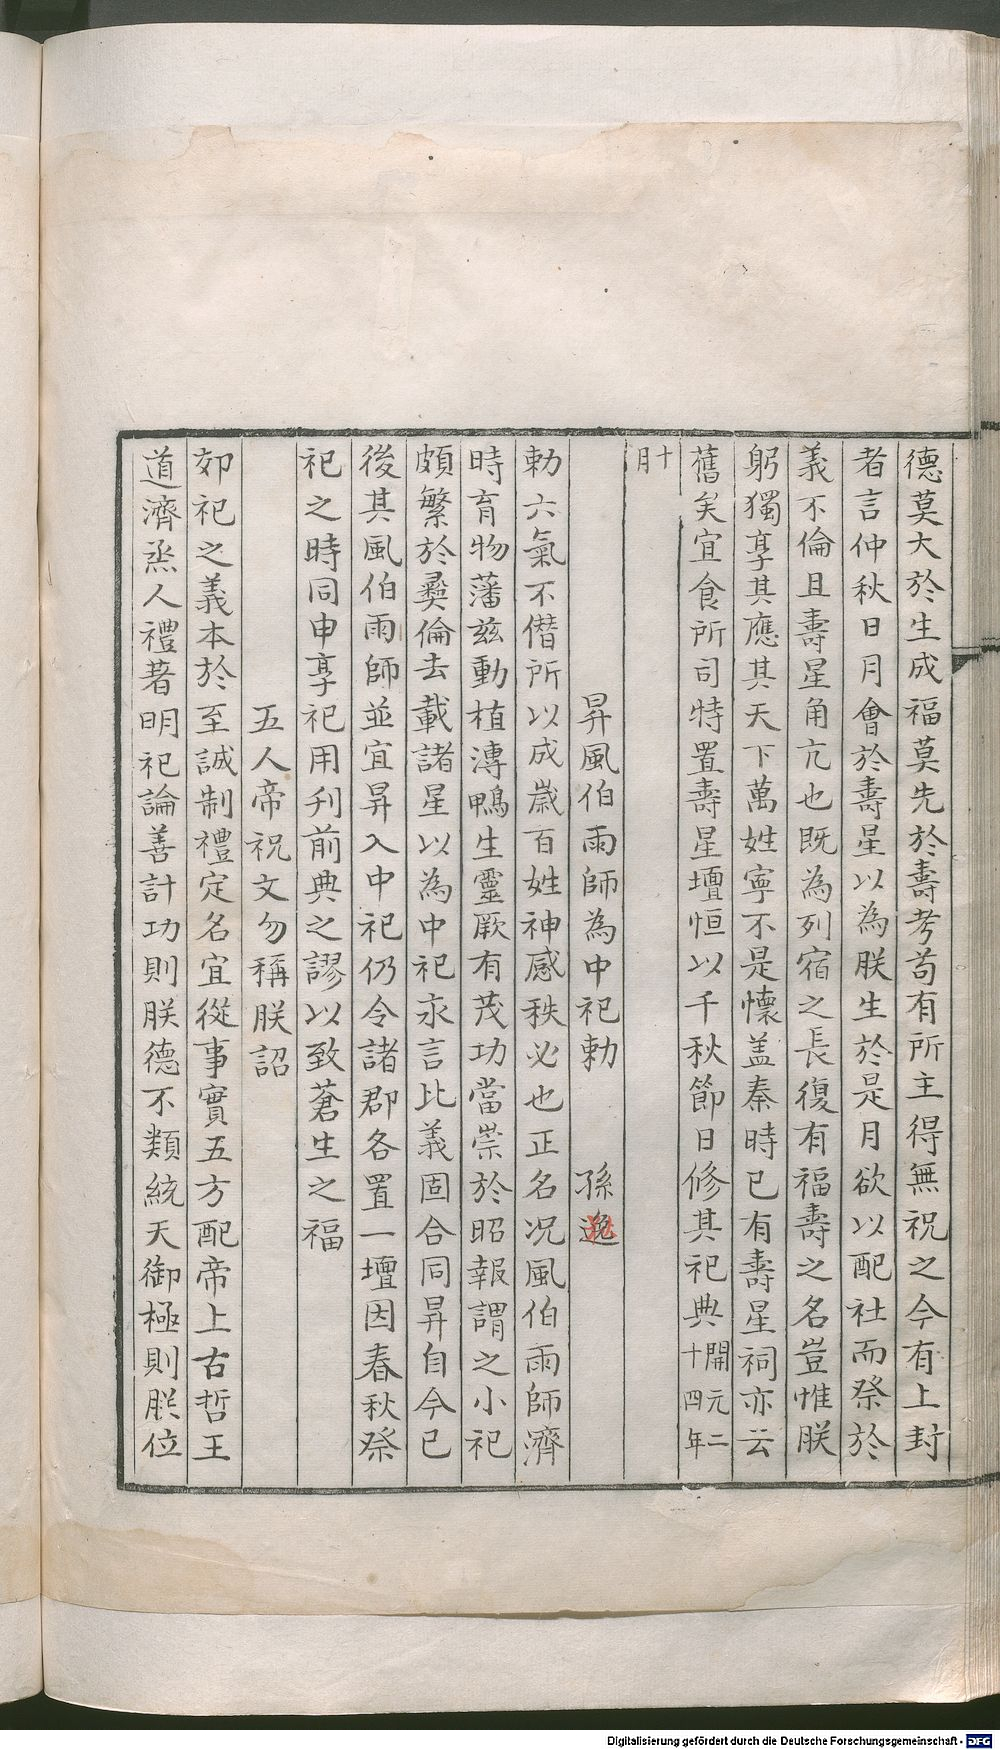 德莫大於生成福莫先於壽考苟有所主得無祝之今有上封
者言仲秋日月會於壽星以為朕生於是月欲以配社而祭於
義不倫且壽星角亢也既為列宿之長復有福壽之名豈惟朕
躬獨享其應其天下萬姓寧不是懷蓋秦時已有壽星祠亦云
舊矣宜食所司特置壽星壇恒以千秋節日修其祀典開元二十四年
十月
昇風伯雨師為中祀勅 孫逖
勅六氣不僭所以成歲百姓神感秩必也正名况風伯雨師濟
時育物藩兹動植溥鴨生靈厥有茂功當崇於昭報謂之小祀
頗繁於彞倫去載諸星以為中祀永言比義固合同昇自今已
後其風伯雨師並宜昇入中祀仍令諸郡各置一壇因春秋祭
祀之時同申享祀用刋前典之謬以致蒼生之福
五人帝祝文勿稱朕詔
郊祀之義本於至誠制禮定名宜從事實五方配帝上古哲王
道濟烝人禮著明祀論善計功則朕德不類統天御極則朕位
Digitalisierung gefördert durch die Deutsche Forschungsgemeinschaft - DFG